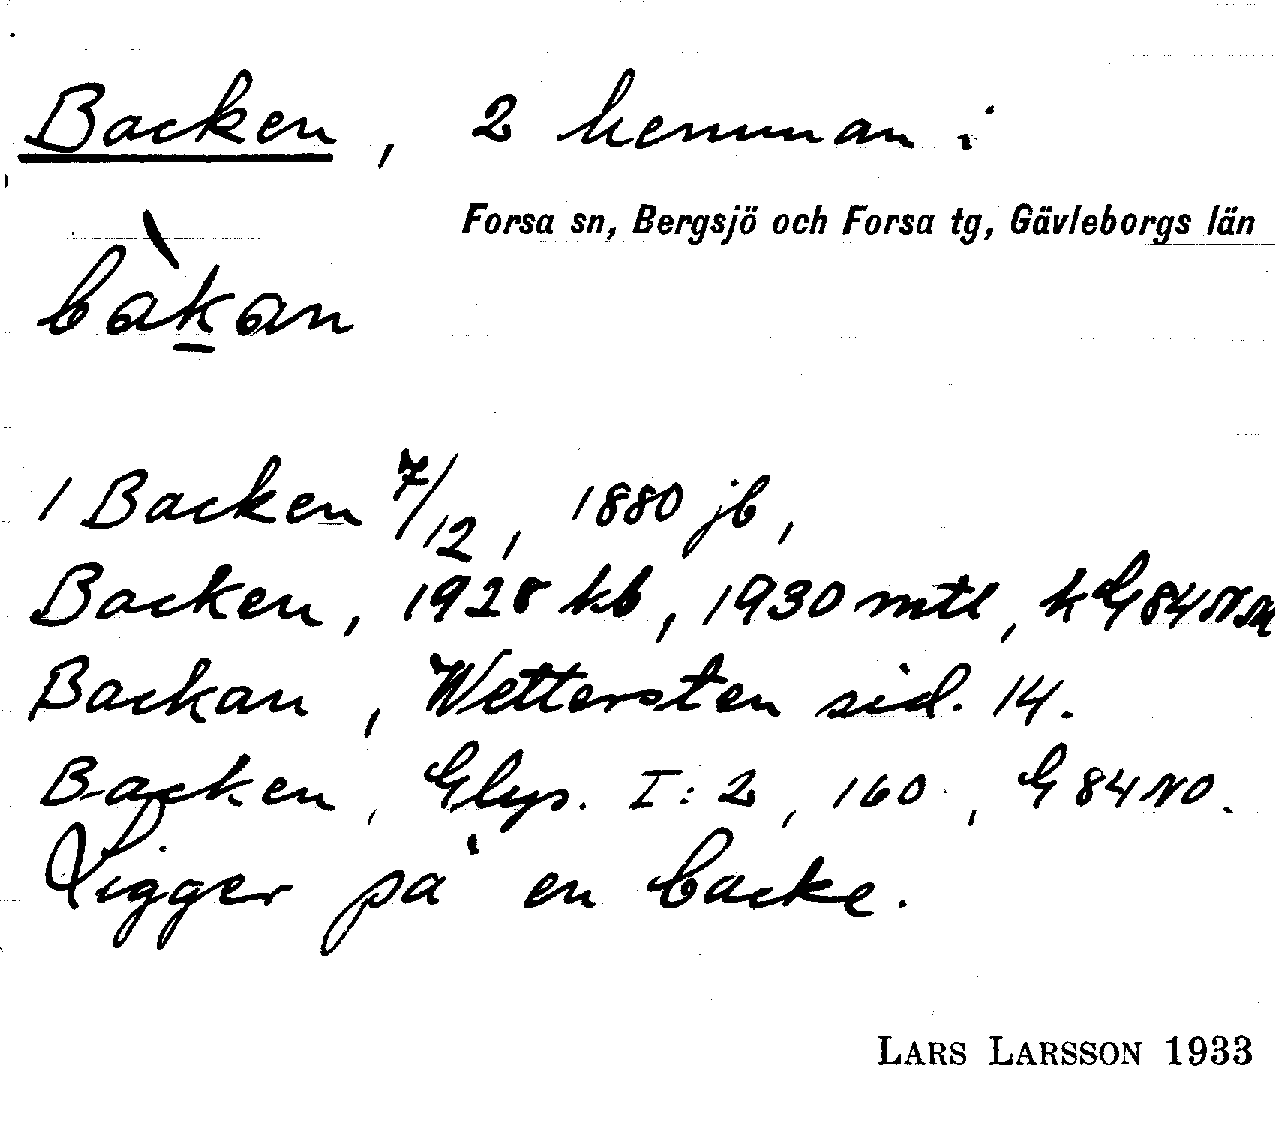 Backen, 2 hemman i
Forsa sn, Bergsjö och Forsa tg, Gävleborgs län
bàkan
1 Backen 7/12, 1880 jb,
Backen, 1928 kb, 1930 mtl, kG84
Backan, Wettersten sid. 14.
Backen, Elys. I:2, 160, G 84 NO.
Ligger på en backe.
LARS LARSSON 1933